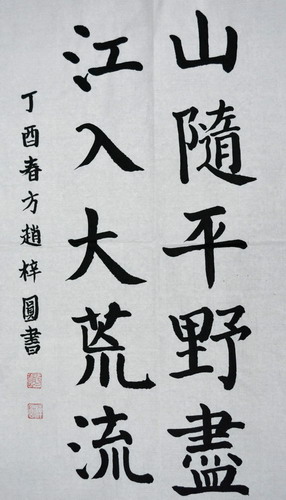 山隨平野盡
江入大荒流
丁酉春方趙梓圓書